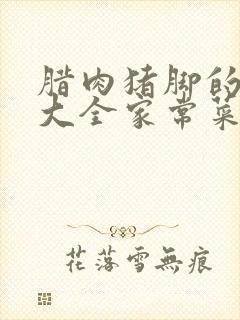 腊肉猪脚的
大全家常菜
花落雪無痕